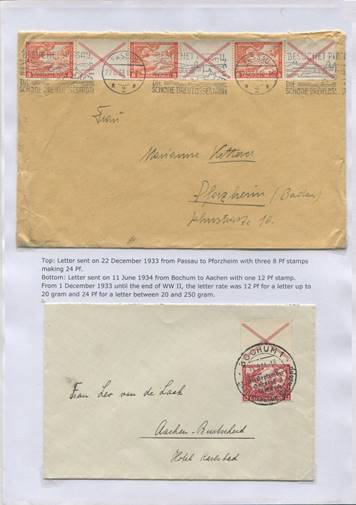 BESUCHT PASSAU
SCHÖNE DREIFLÜSSESTADT
BESUCHT PASSAU
SCHÖNE DREIFLÜSSESTADT
Frau
Marianne
Pforzheim (Baden)
Top: Letter sent on 22 December 1933 from Passau to Pforzheim with three 8 Pf stamps
making 24 Pf.
Bottom: Letter sent on 11 June 1934 from Bochum to Aachen with one 12 Pf stamp.
From 1 December 1933 until the end of WW II, the letter rate was 12 Pf for a letter up to
20 gram and 24 Pf for a letter between 20 and 250 gram.
BOCHUM 1
Frau Leo van de Laak
Aachen-Burtscheid
Hotel Karlsbad